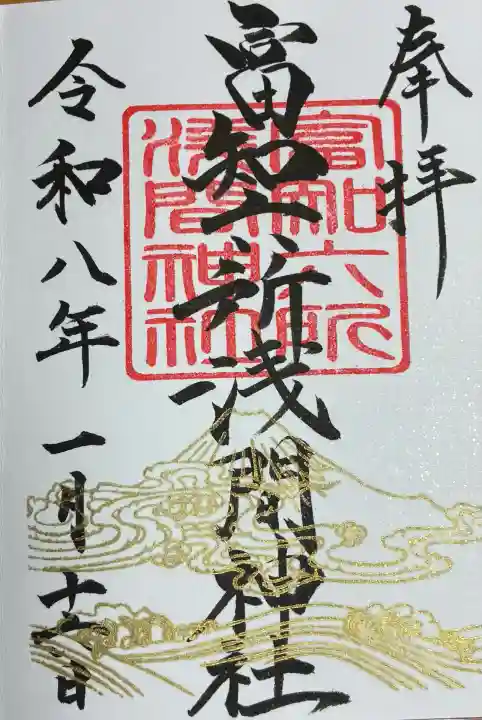 奉拝
富知六所浅間神社
富知六所
淺間神社
令和八年一月十日